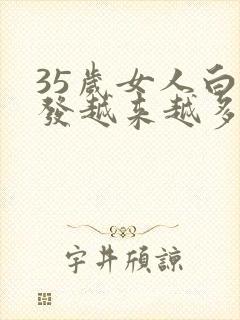 35歲女人白
發越来越多
宇井頎諒